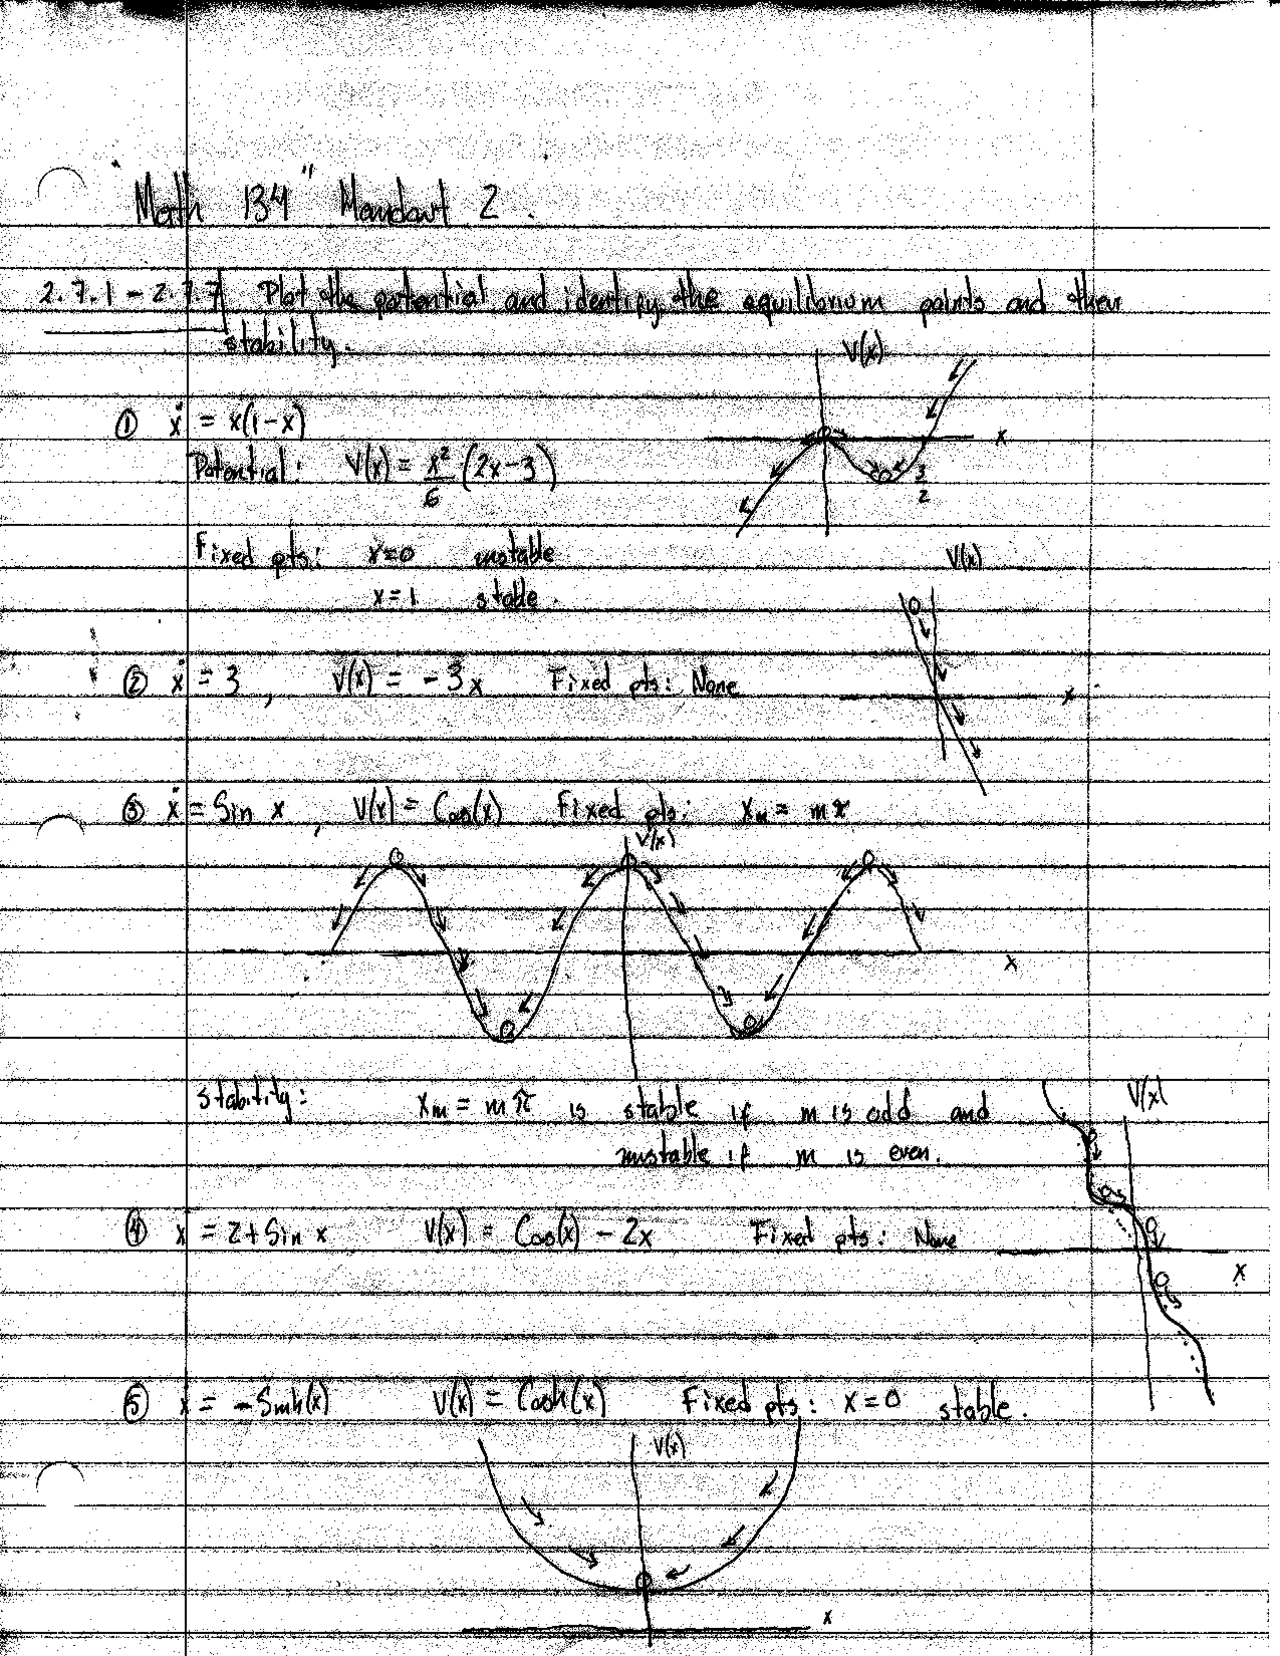 "Math 134" Handout 2.
2.7.1 - 2.7.7 Plot the potential and identify the equilibrium points and their
stability.
V(x)
① ẋ = x(1-x)
x
Potential: V(x) = x²/6 (2x-3)
3/2
Fixed pts: x=0 unstable
V(x)
x=1 stable.
② ẋ = 3, V(x) = -3x Fixed pts: None
x
③ ẋ = Sin x, V(x) = Cos(x) Fixed pts: xm = mπ
V(x)
x
Stability: xm = mπ is stable if m is odd and
unstable if m is even.
V(x)
④ ẋ = 2+Sin x V(x) = Cos(x) - 2x Fixed pts: None
x
⑤ ẋ = -Sinh(x) V(x) = Cosh(x) Fixed pts: x=0 stable.
V(x)
x